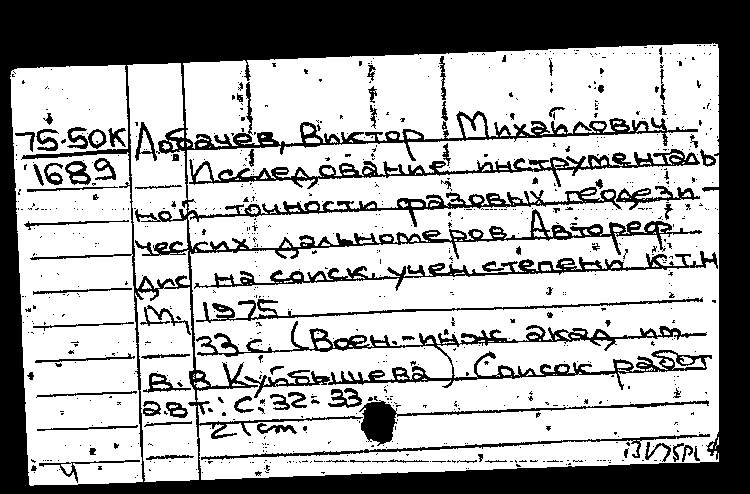 75-50К Лобачев, Виктор Михайлович
1689 Исследование инструменталь
ной точности фазовых геодези-
ческих дальномеров. Автореф.
дис. на соиск. учен. степени к.т.н
М., 1975.
33 с. (Воен.-инж. акад им.
В.В Куйбышева). Список работ
авт.: с. 32-33.
21 см.
Ч